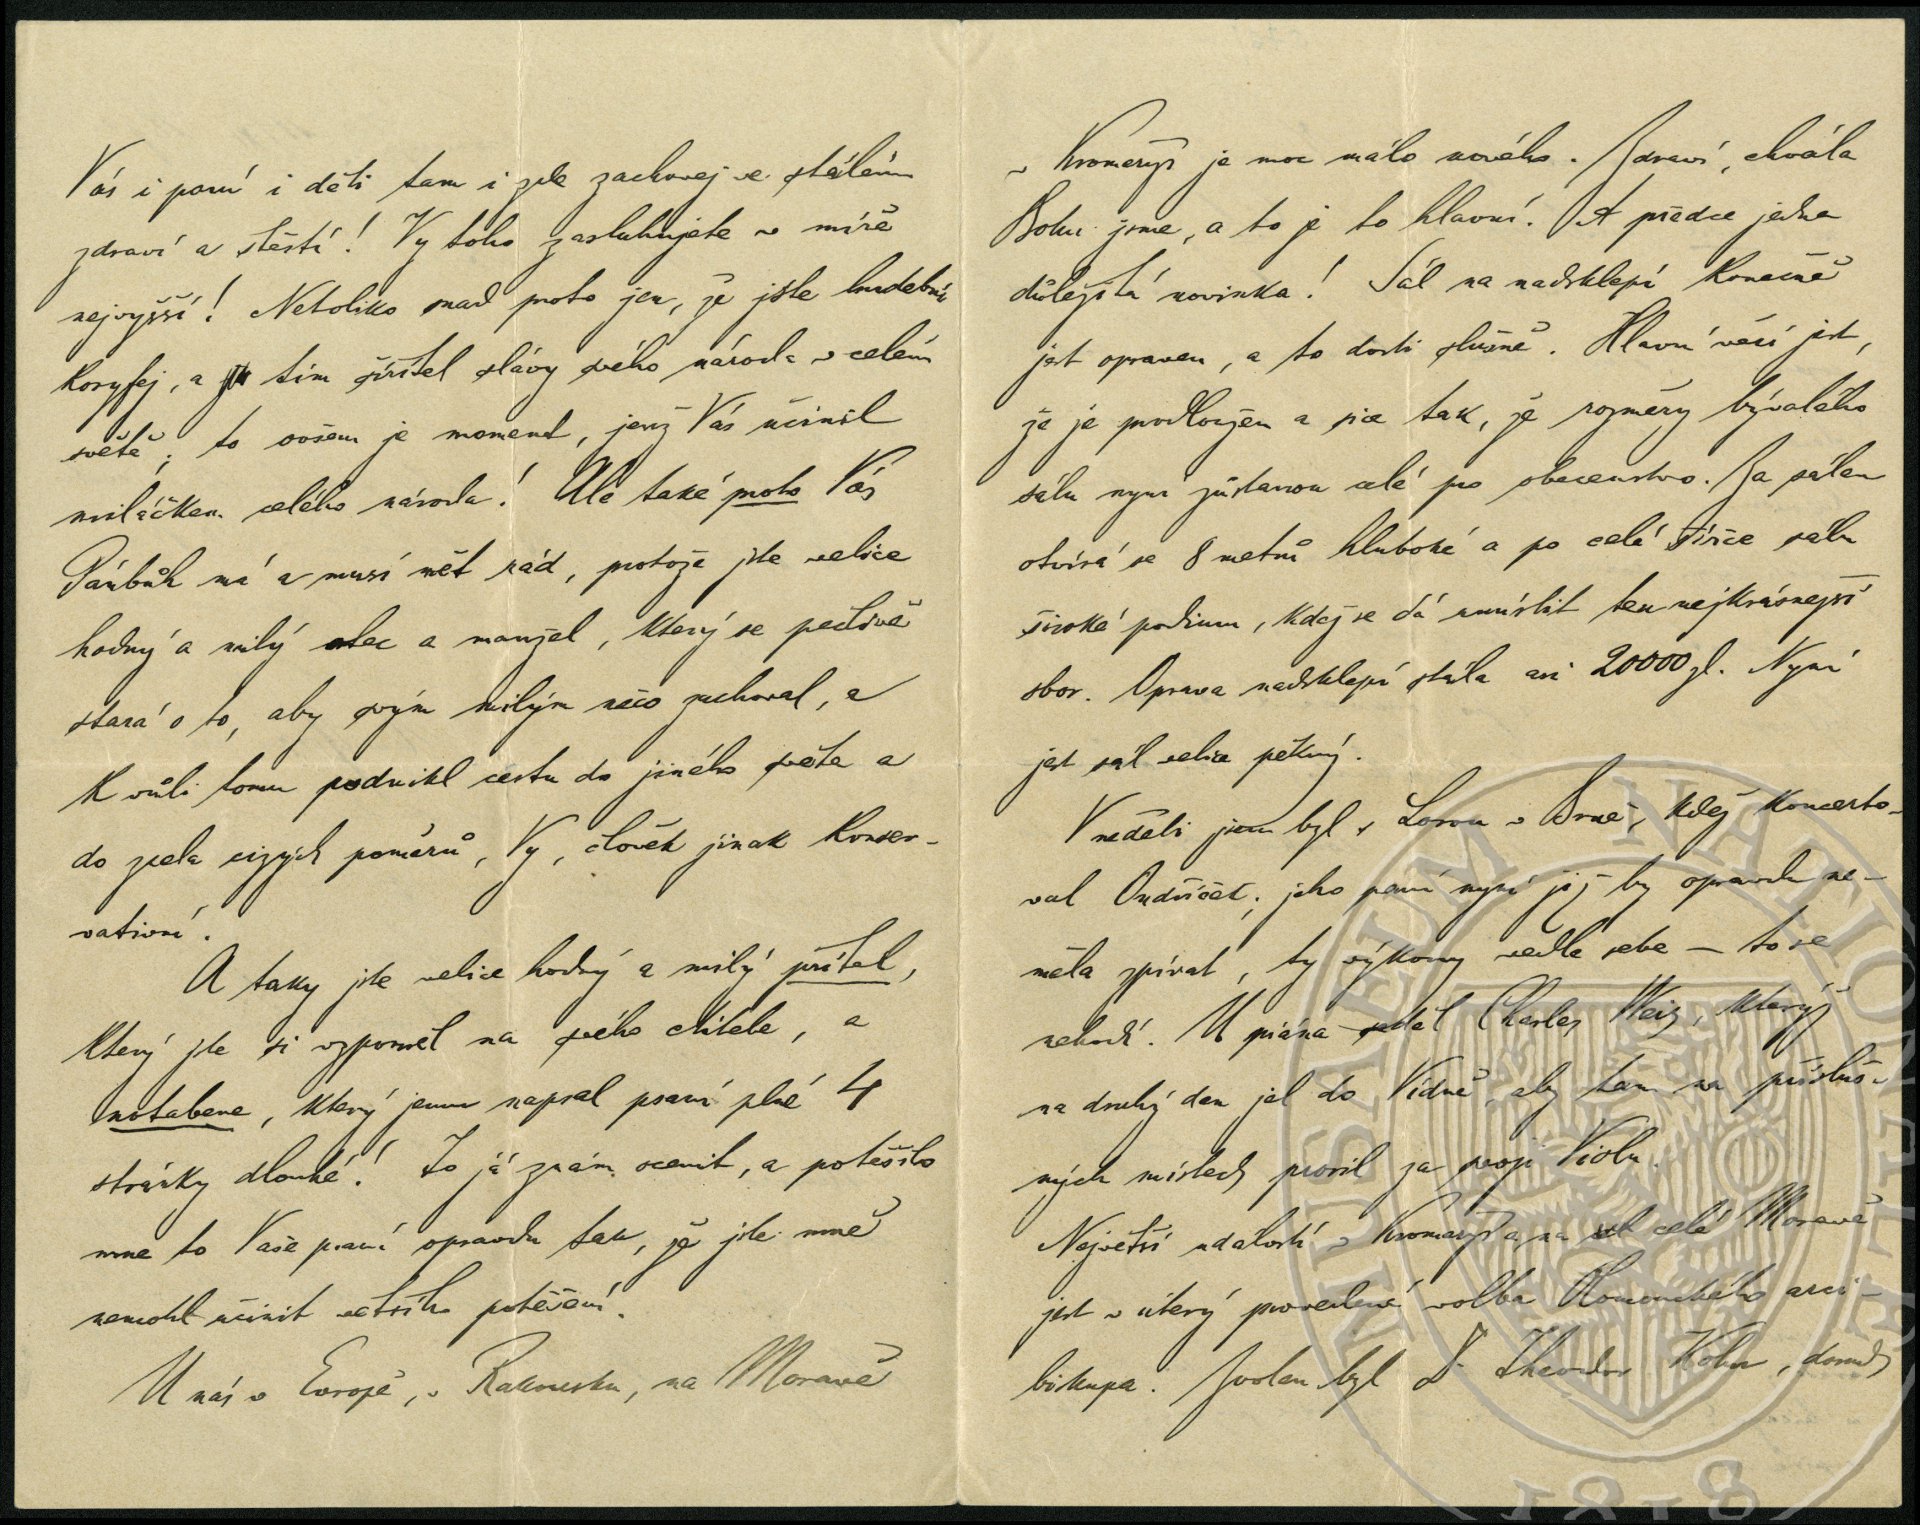 Vás i paní i děti tam i zde zachovej ve stálém
zdraví a štěstí! Vy toho zasluhujete v míře
nejvyšší! Netoliko snad proto jen, že jste hudební
Koryfej, a tím šiřitel slávy svého národa v celém
světě; to ovšem je moment, jenž Vás učinil
miláčkem celého národa! Ale také proto Vás
Pánbůh má a musí mět rád, protože jste velice
hodný a milý otec a manžel, který se pečlivě
stará o to, aby svým milým něco zachoval, a
k vůli tomu podnikl cestu do jiného světa a
do zcela cizých poměrů, Vy, člověk jinak konser-
vativní.
A taky jste velice hodný a milý přítel,
který jste si vzpomněl na svého ctitele, a
notabene, který jemu napsal psaní plné 4
stránky dlouhé! To já znám ocenit, a potěšilo
mne to Vaše psaní opravdu tak, že jste mně
nemohl učinit většího potěšení.
U nás v Evropě, v Rakousku, na Moravě
v Kroměříži je moc málo nového. Zdraví, chvála
Bohu jsme, a to je to hlavní. A předce jedna
důležitá novinka! Sál na nadsklepí konečně
jest opraven, a to dosti slušně. Hlavní věcí jest,
že je prodloužen a sice tak, že rozměry bývalého
sálu nyní zůstanou celé pro obecenstvo. Za sálem
otvírá se 8 metrů hluboké a po celé šířce sálu
široké podium, kdež se dá umístit ten nejkrásnejší
sbor. Oprava nadsklepí stála asi 20000 zl. Nyní
jest sál velice pěkný.
V neděli jsem byl s Lorou v Brně, kdež koncerto-
val Ondříček; jeho paní nyní již by opravdu ne-
měla zpívat, ty výkony vedle sebe – to se
nehodí. U piána seděl Charles Weis, kterýž
na druhý den jel do Vídně, aby tam na přísluš-
ných místech prosil za svoji Violu.
Největší událostí v Kroměříži a na celé Moravě
jest v úterý provedená volba Olomouckého arci-
biskupa. Zvolen byl Dr Theodor Kohn, dosud